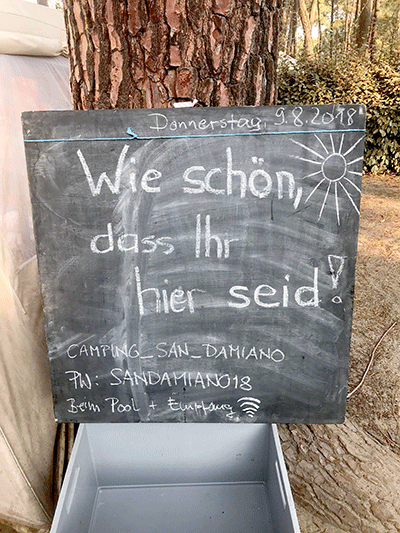 Donnerstag, 9.8.2018
Wie schön,
dass Ihr
hier seid!
CAMPING_SAN_DAMIANO
PW: SANDAMIANO18
Beim Pool + Empfang